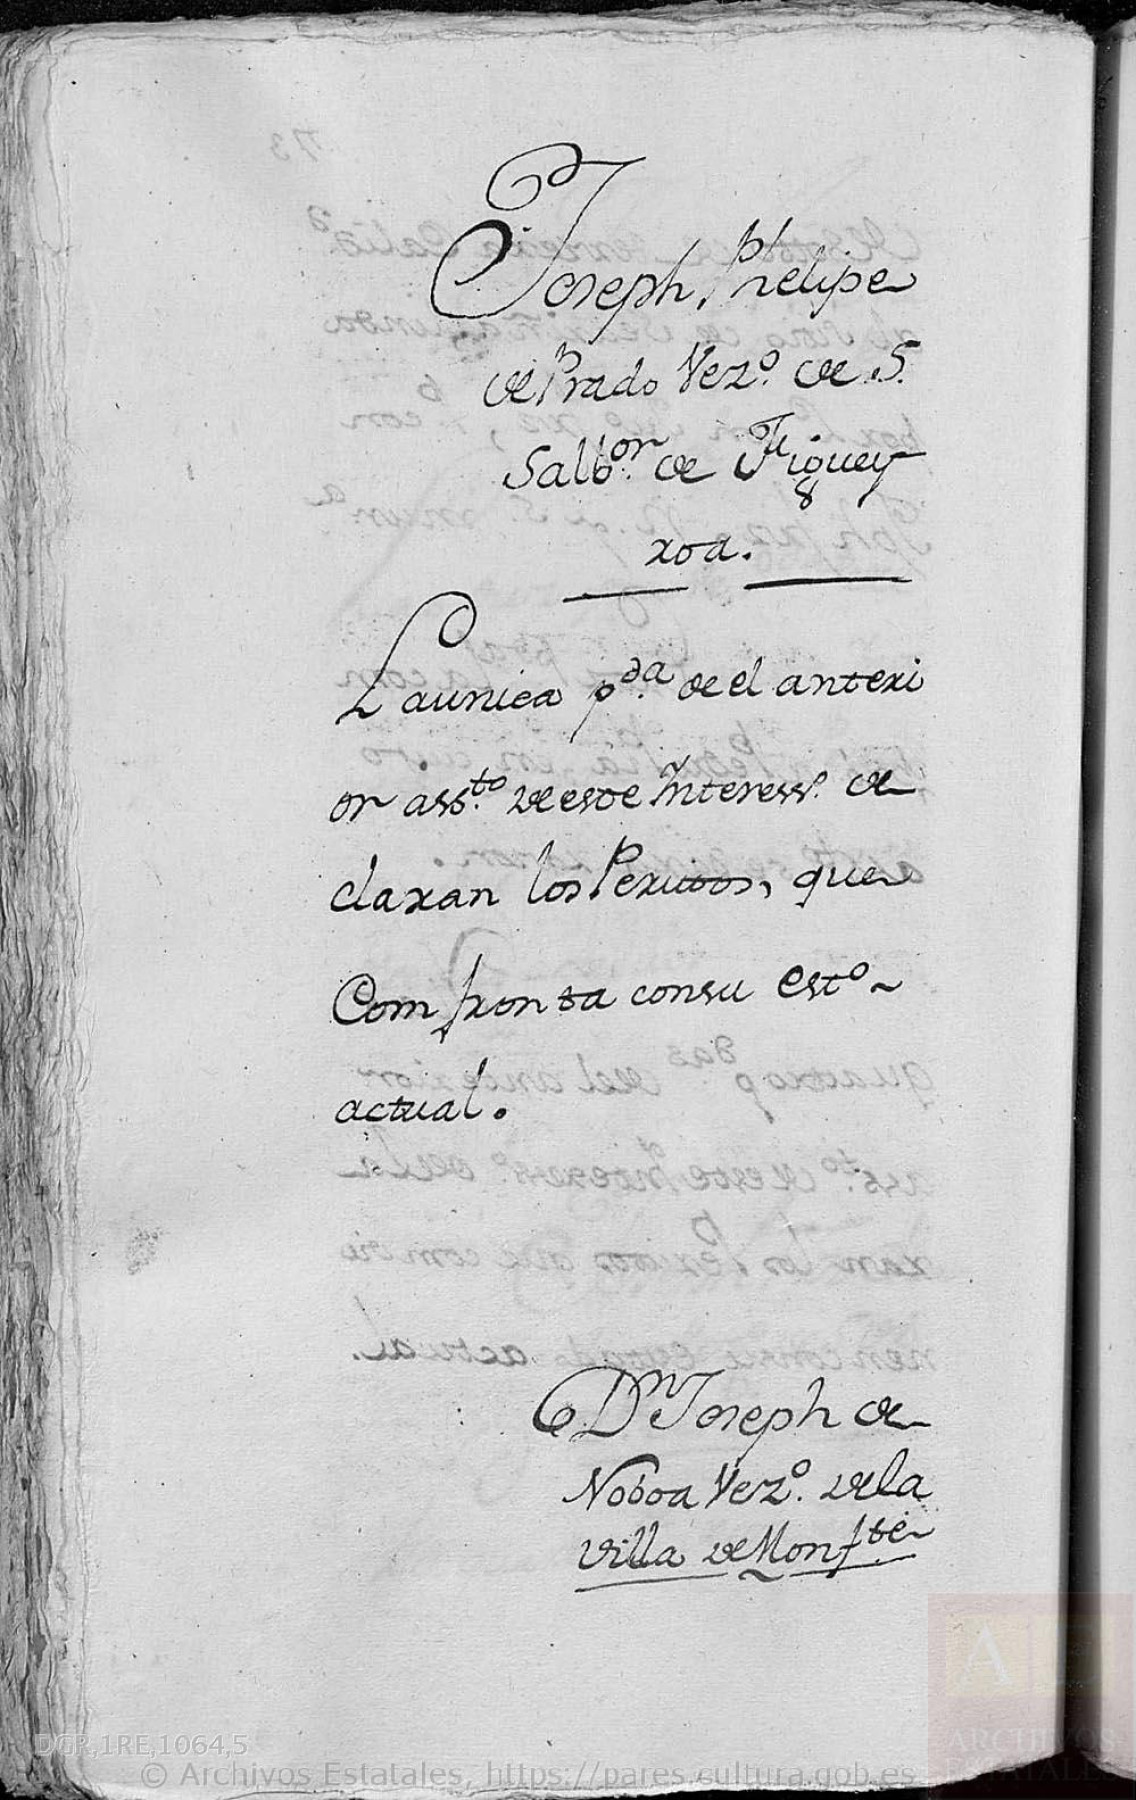 Joseph, Phelipe
de Prado Vezº. de .S.
Salbºr. de Figuey
roa.
La unica pda. de el anteri
or assto. de este Interessº. de
claran los Peritos, que
Comfronta con su estº~
actual.
Dn Joseph de
Noboa Vezº. de la
villa de Monfte
DGR,1RE,1064,5
© Archivos Estatales, https://pares.cultura.gob.es
A E
ARCHIVOS
ESTATALES